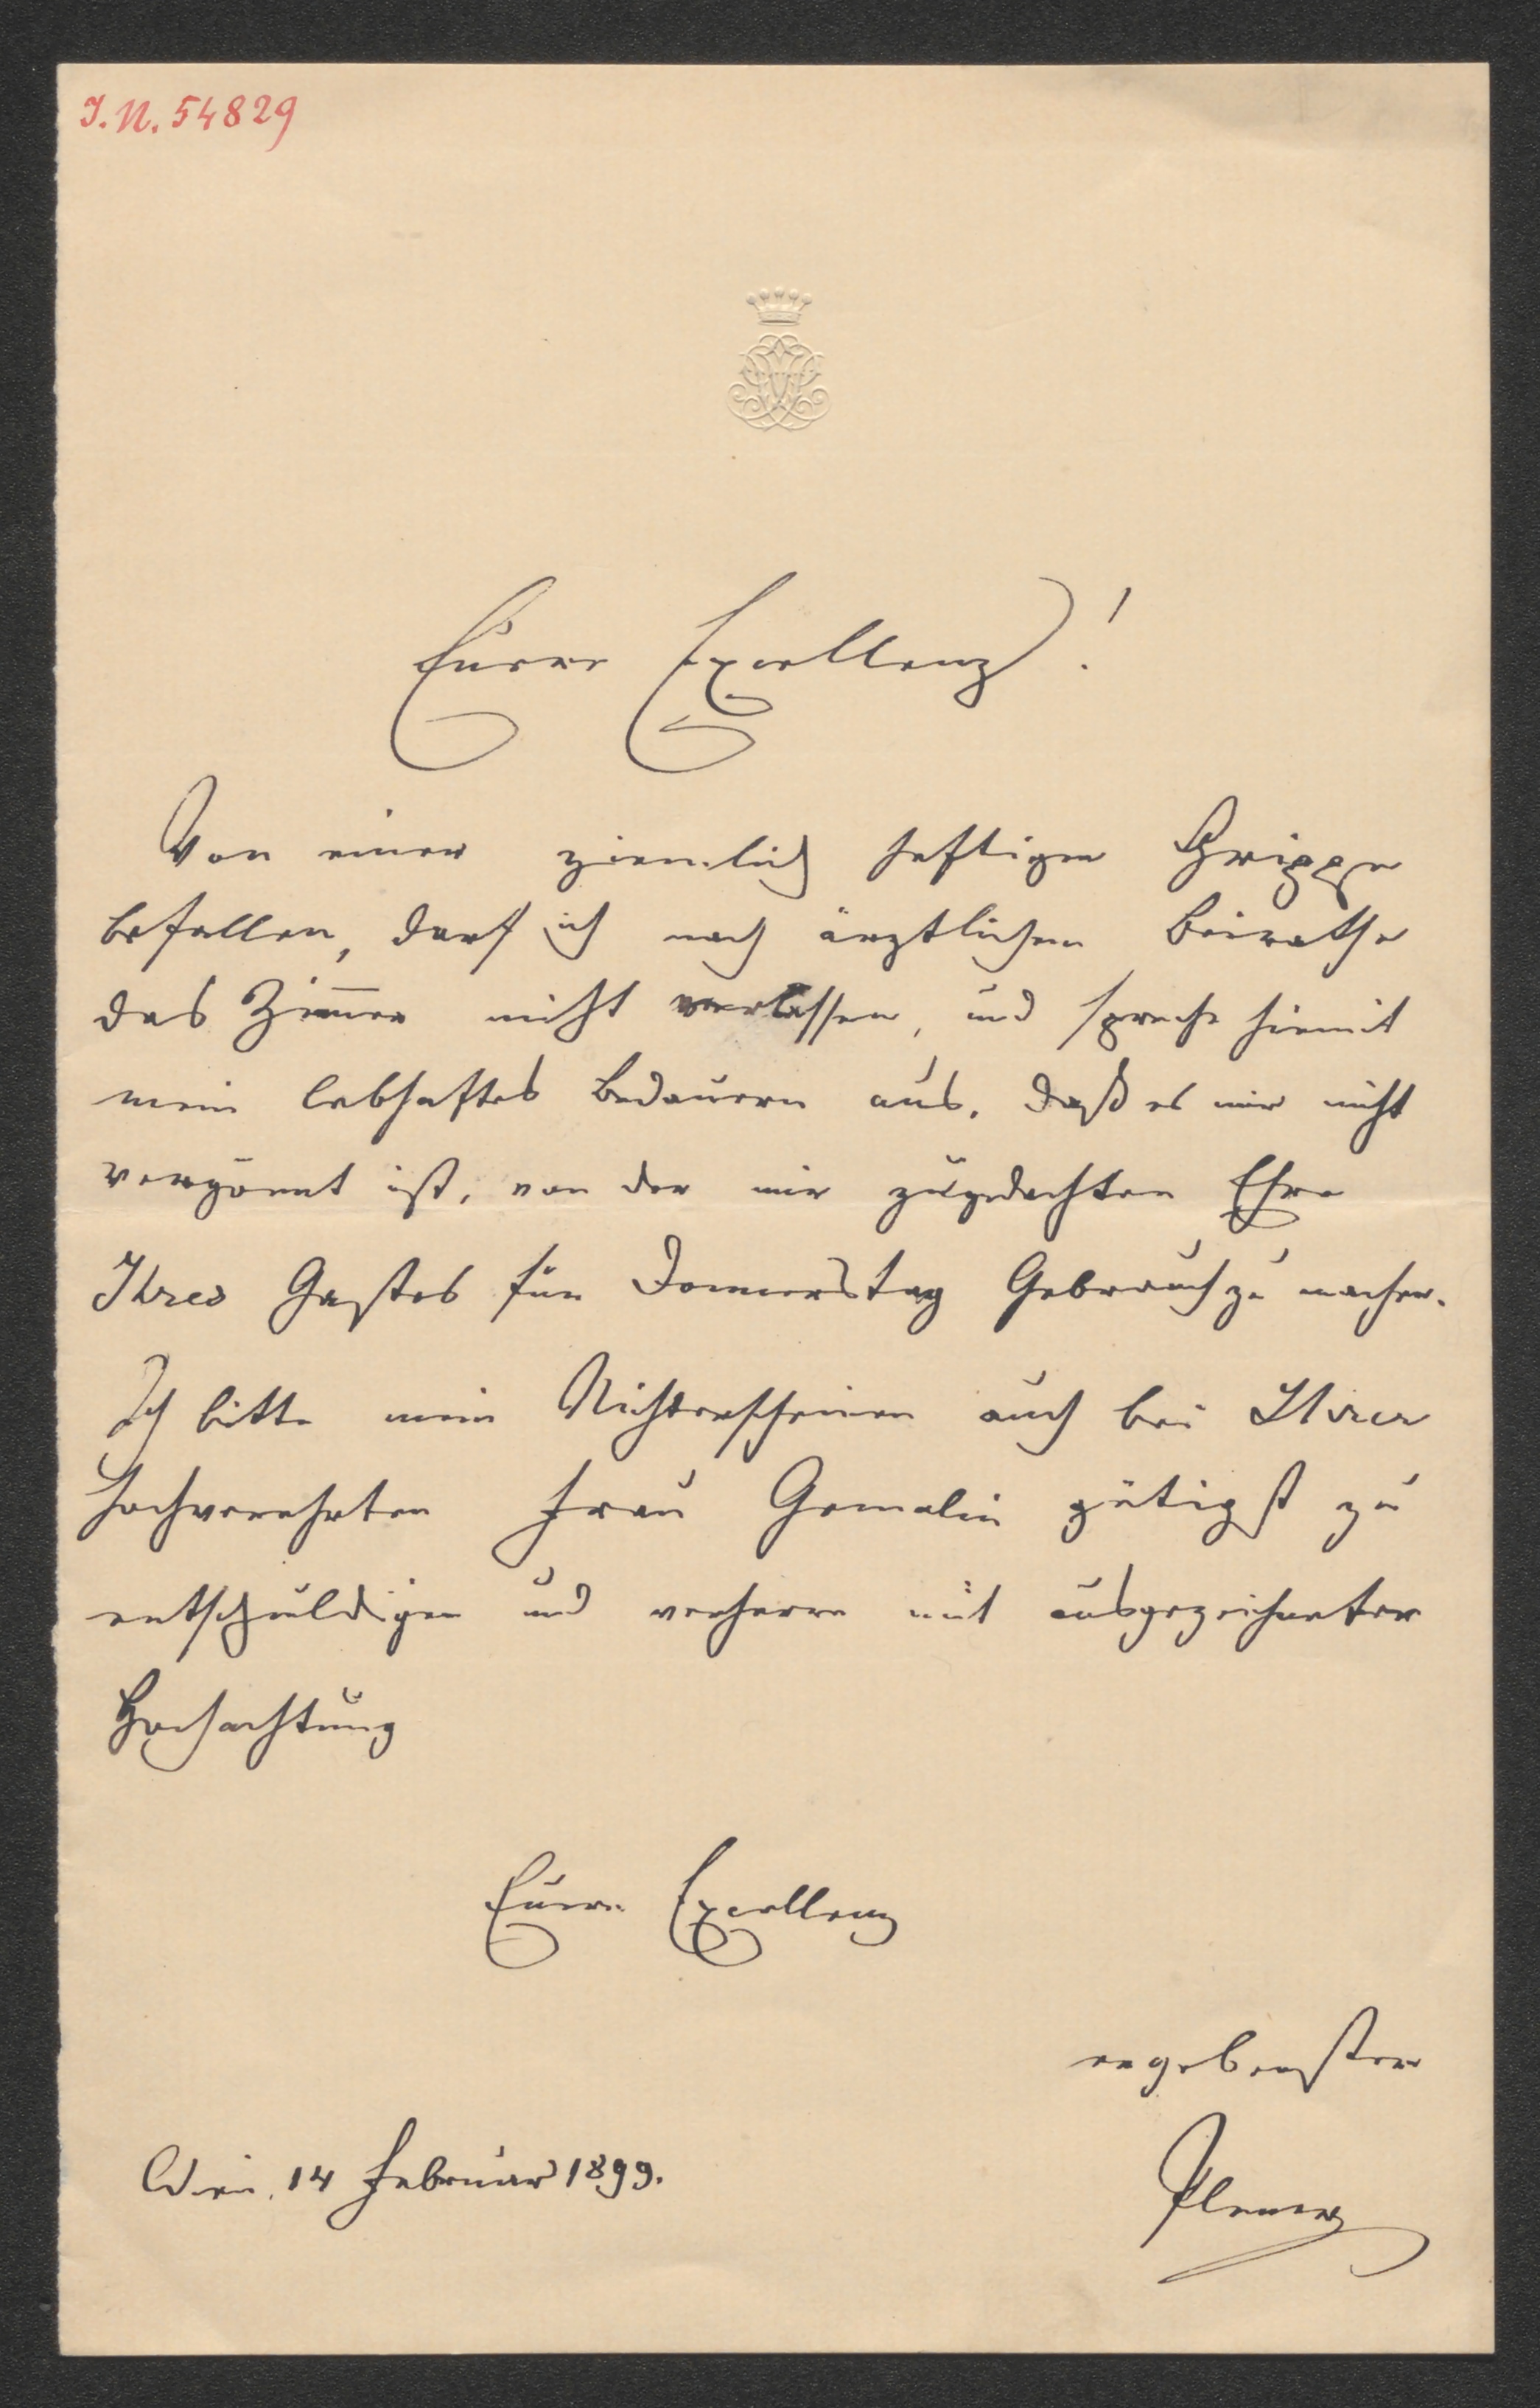 I. N. 54829
Eurer Excellenz!
Von einer ziemlich heftigen Grippe
befallen, darf ich nach ärztlichem Beirathe
das Zim̅er nicht verlassen, und spreche hiemit
mein lebhaftes Bedauern aus, daß es mir nicht
vergönnt ist, von der mir zugedachten Ehre
Ihres Gastes für Donnerstag Gebrauch zu machen.
Ich bitte mein Nichterscheinen auch bei Ihrer
hochverehrten Frau Gemalin gütigst zu
entschuldigen und verharre mit ausgezeichneter
Hochachtung
Eurer Excellenz
ergebenster
Wien, 14 Februar 1899.
Plener